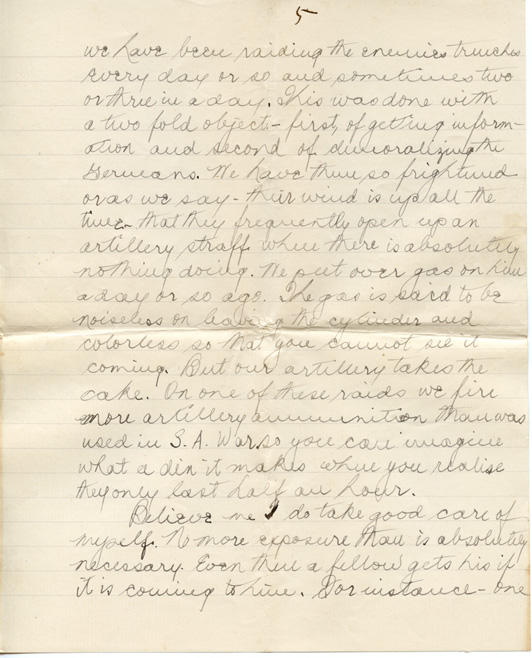 5
we have been raiding the enemies trenches
every day or so and sometimes two
or three in a day. This was done with
a two fold object - first, of getting inform-
ation and second of dimoralizing the
Germans. We have them so frightened
or as we say - their wind is up all the
time - that they frequently open up an
artillery straff when there is absolutely
nothing doing. We put over gas on him
a day or so ago. The gas is said to be
noiseless on leaving the cylinder and
colorless so that you cannot see it
coming. But our artillery takes the
cake. On one of these raids we fire
more artillery ammunition than was
used in S. A. War so you can imagine
what a din it makes when you realise
they only last half an hour.
Believe me I do take good care of
myself. No more exposure than is absolutely
necessary. Even then a fellow gets his if
it is coming to him. For instance - one